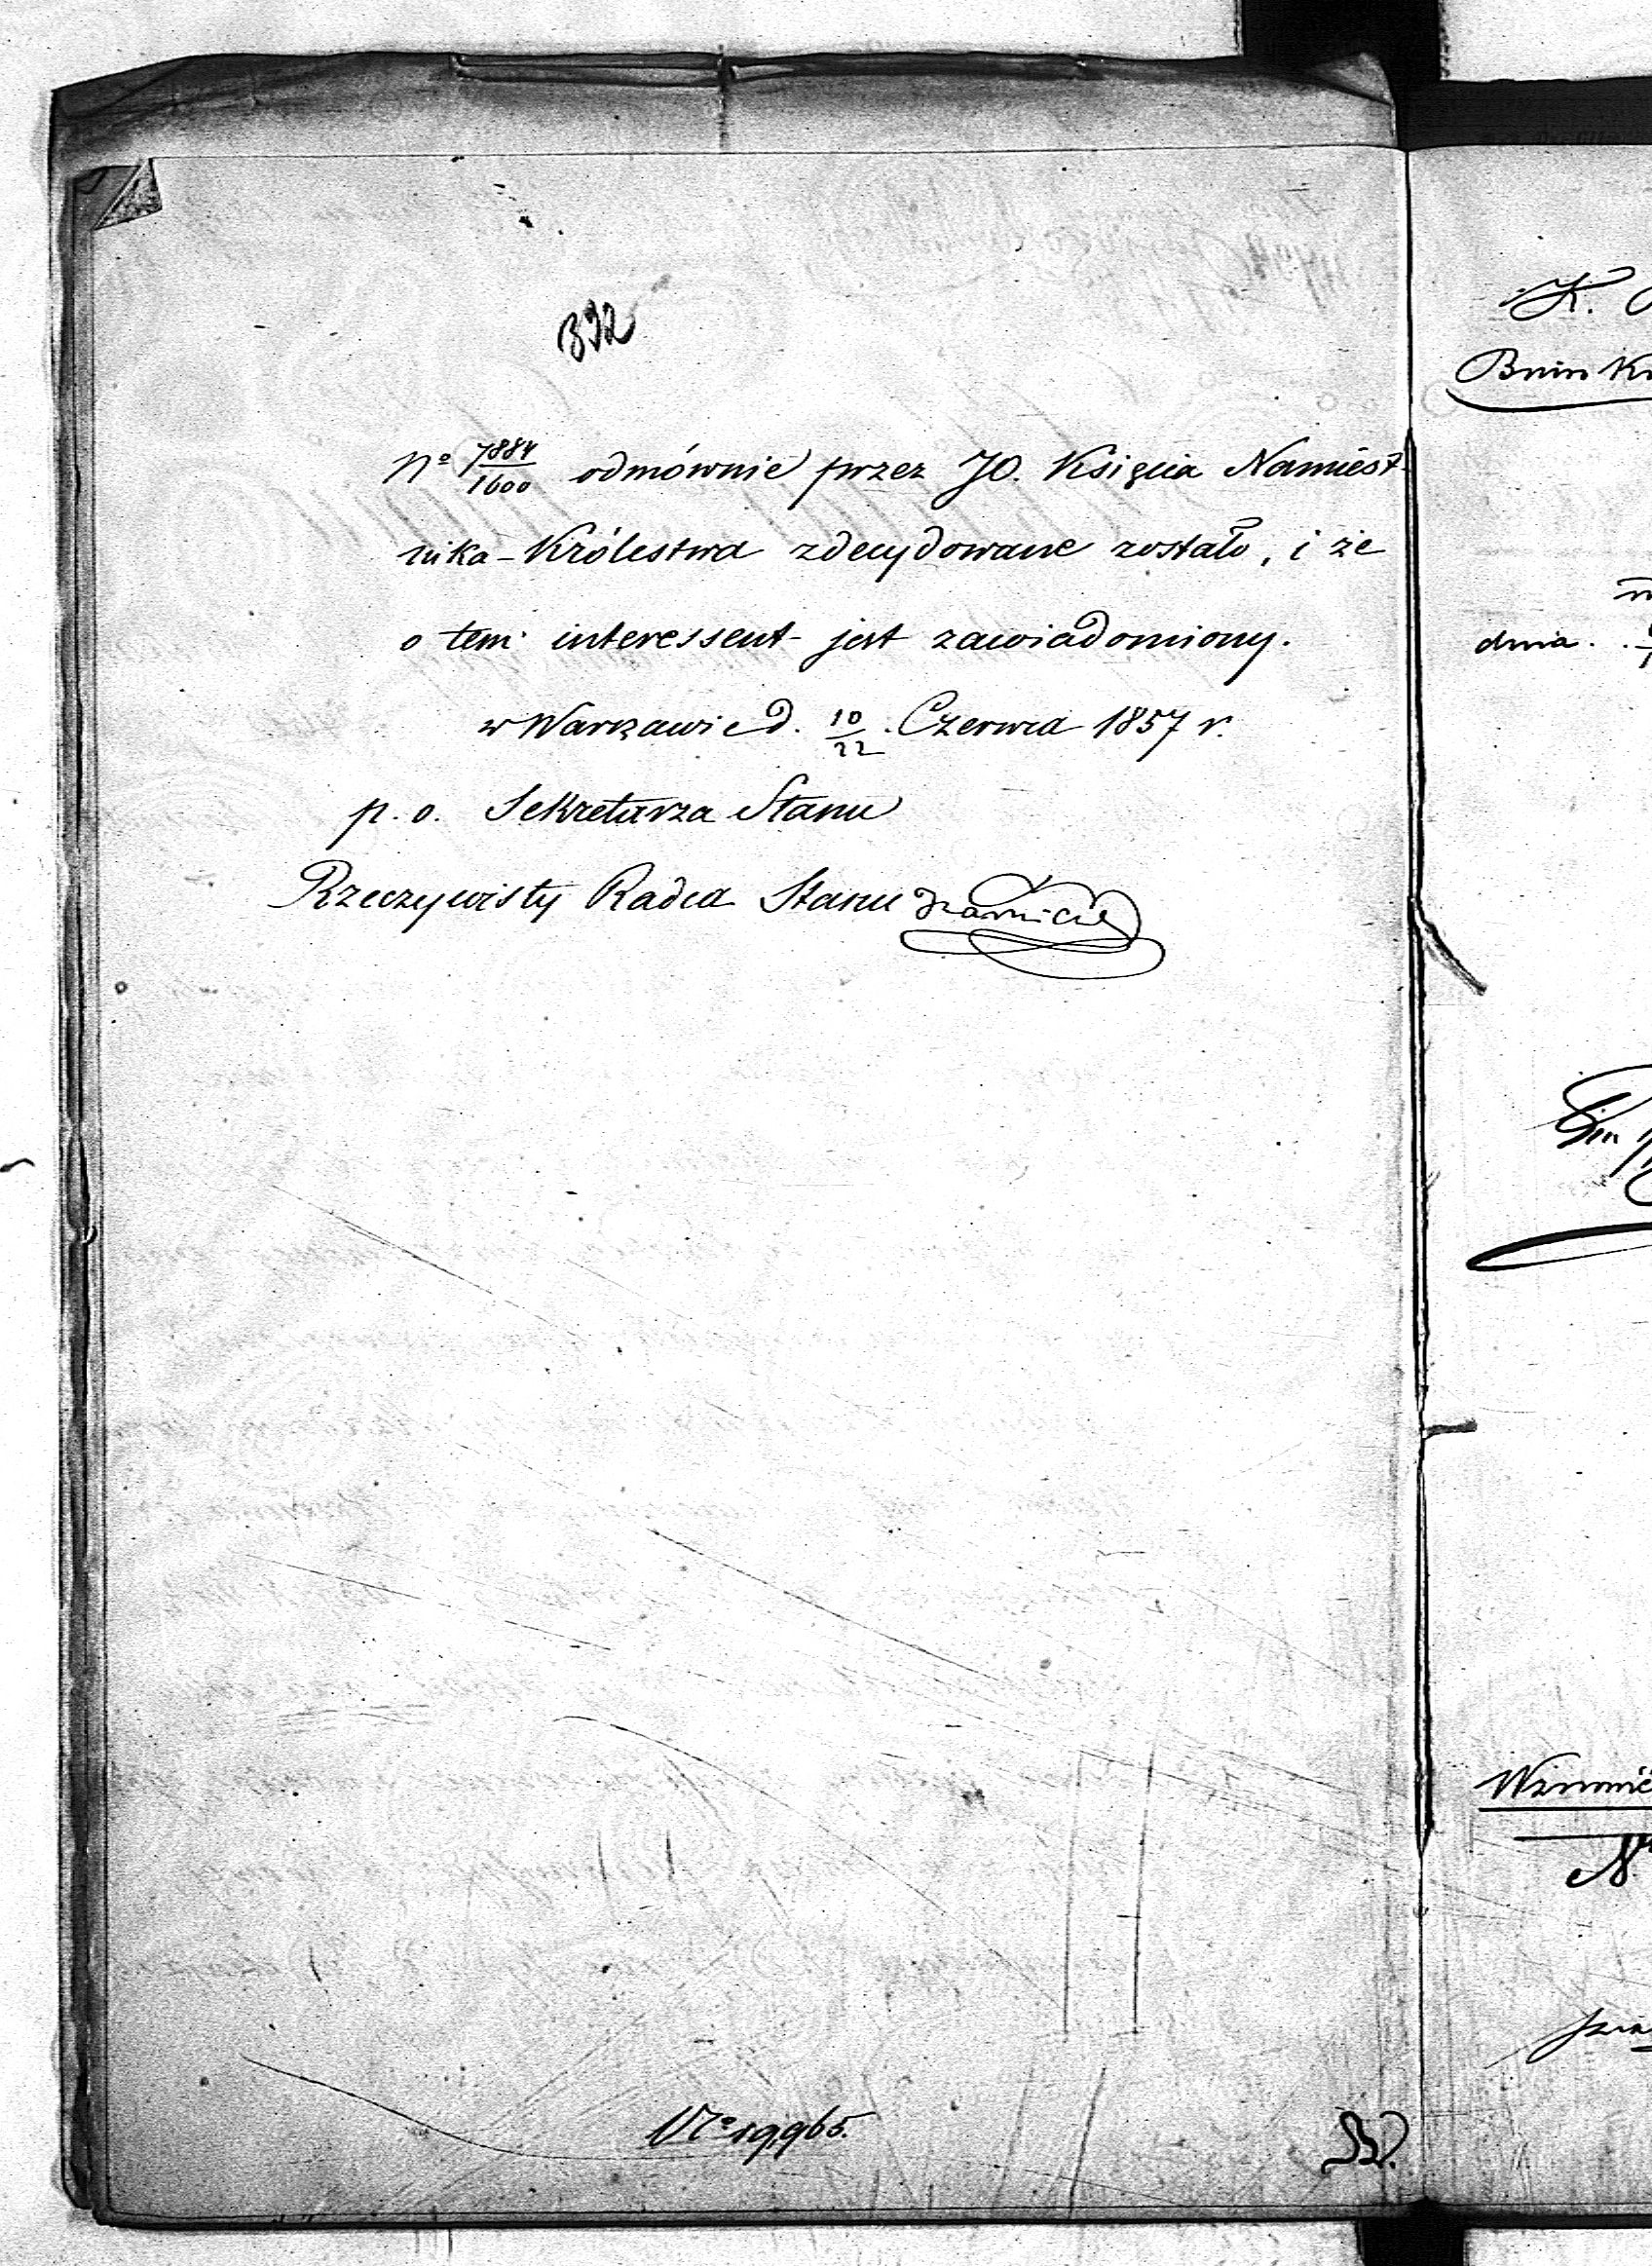 392
No 7884/1600 odmównie przez JO. Księcia Namiest-
nika Królestwa zdecydowane zostało, i że
o tem interessent jest zawiadomiony.
w Warszawie d. 10/22 Czerwca 1857 r.
p. o. Sekretarza Stanu
Rzeczywisty Radca Stanu Karnicki
No 19,965.
K.
Bnin
dnia